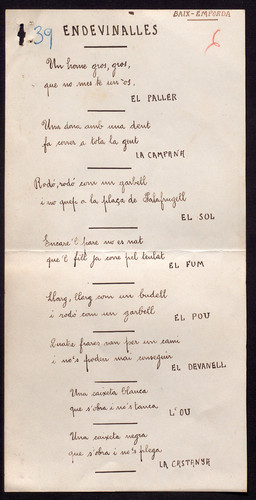 BAIX-EMPORDÀ
39
6
ENDEVINALLES
Un home gros, gros,
que no mes té un os.
EL PALLER
Una dona amb una dent
fa correr a tota la gent
LA CAMPANA
Rodó, rodó com un garbell
i no quep a la plaça de Palafrugell
EL SOL
Encare 'l pare no es nat
que 'l fill ja corre pel teulat
EL FUM
Llarg, llarg com un budell
i rodó com un garbell
EL POU
Quatre frares van per un camí
i no's poden mai conseguir
EL DEVANELL
Una caixeta blanca
que s'obra i no's tanca
L'OU
Una caixeta negra
que s'obra i no's plega
LA CASTANYA